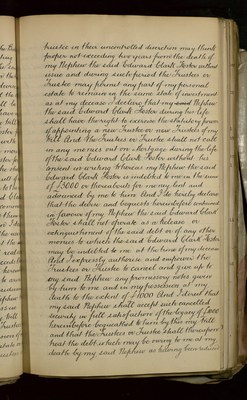 trustee in their uncontrolled discretion may think
proper not exceeding two years from the death of
my Nephew the said Edward Clark Foster without
issue and during such period the Trustees or
Trustee may permit any part of my personal
estate to remain in the same state of investment
as at my decease I declare that my Nephew
the said Edward Clark Foster during his life
shall have the right to exercise the statutory power
of appointing a new Trustee or new Trustees of my
Will And the Trustees or Trustee shall not call
in any monies out on Mortgage during the life
of the said Edward Clark Foster without his
consent in writing Whereas my Nephew the said
Edward Clark Foster is indebted to me in the sum
of £3000 or thereabouts for money lent and
advanced by me to him And I hereby declare
that the devise and bequests hereinbefore contained
in favour of my Nephew the said Edward Clark
Foster shall not operate as a release or
extinguishment of the said debt or of any other
monies to which the said Edward Clark Foster
may be indebted to me at the time of my decease
And I expressly authorize and empower the
Trustees or Trustee to cancel and give up to
my said Nephew any promissory notes given
by him to me and in my possession at my
death to the extent of £1000 And I direct that
my said Nephew shall accept such cancelled
security in full satisfaction of the legacy of £1000
hereinbefore bequeathed to him by this my Will
and that the Trustees or Trustee shall thereupon
treat the debt which may be owing to me at my
death by my said Nephew as having been reduced